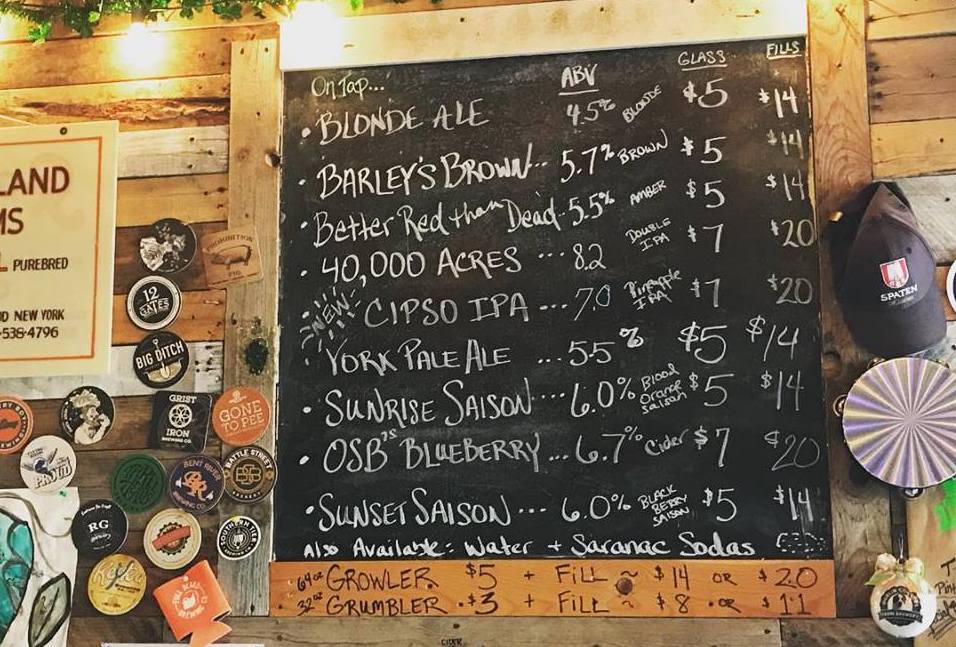 On Tap... ABV GLASS FILLS
• BLONDE ALE 4.5% BLONDE $5 $14
• BARLEY'S BROWN... 5.7% BROWN $5 $14
• Better Red than Dead.. 5.5% AMBER $5 $14
• 40,000 ACRES ... 8.2 DOUBLE IPA $7 $20
NEW CIPSO IPA ... 7.0 Pineapple IPA $7 $20
• YORK PALE ALE ... 5.5% $5 $14
• SUNRISE SAISON ... 6.0% Blood Orange Saison $5 $14
• OSB'S BLUEBERRY ... 6.7% Cider $7 $20
• SUNSET SAISON ... 6.0% BLACK BERRY SAISON $5 $14
Also Available: Water + Saranac Sodas
64oz GROWLER $5 + FILL ~ $14 OR $20
32oz GRUMBLER • $3 + FILL ~ $8 • OR $11
LAND
MS
PUREBRED
NEW YORK
538-4796
PROHIBITION
PIG
12
GATES
BIG DITCH
GRIST
IRON
BREWING CO.
GONE
TO PEE
PROUD
BENT RIVER
BREWING CO
BATTLE STREET
BREWERY
RG
SOUTHERN TIER
SPATEN
CIDER